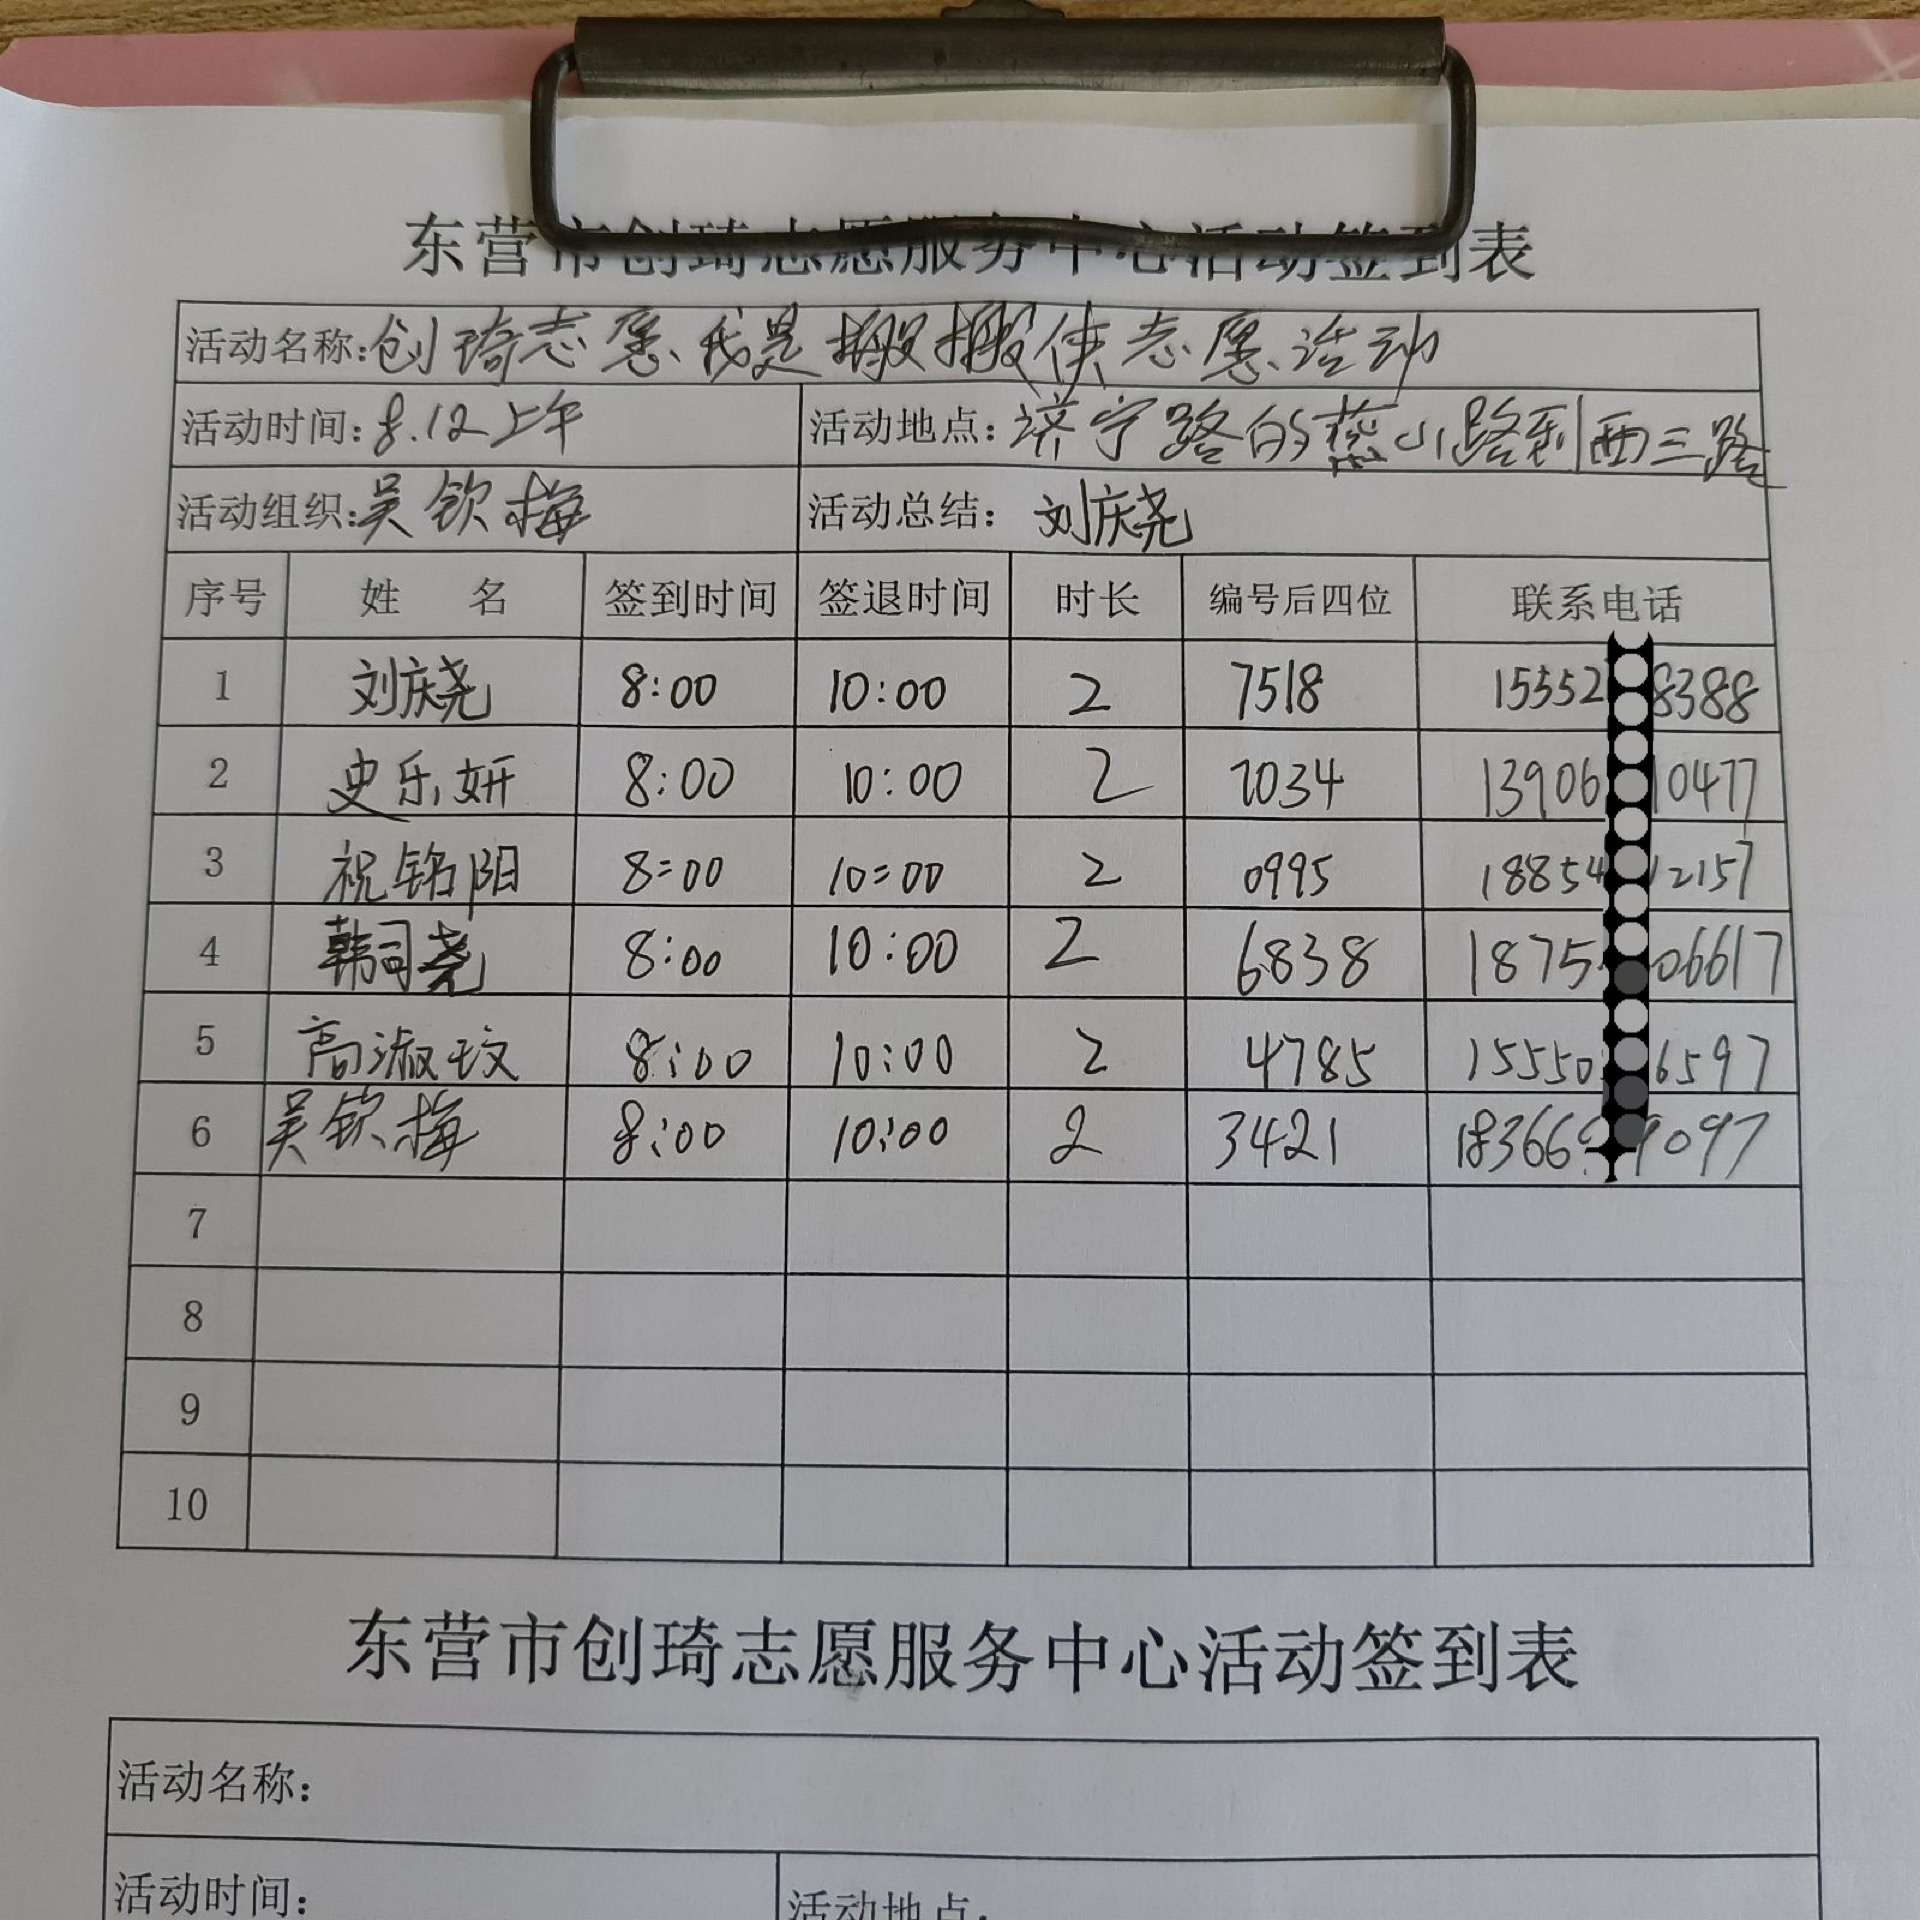 东营市创琦志愿服务中心活动签到表
活动名称:创琦志愿、我是搬搬侠志愿活动
活动时间:8.12上午 活动地点:济宁路的燕山路到西三路
活动组织:吴钦梅 活动总结:刘庆尧
序号 姓 名 签到时间 签退时间 时长 编号后四位 联系电话
1 刘庆尧 8:00 10:00 2 7518 15552 8388
2 史乐妍 8:00 10:00 2 7034 13906 10477
3 祝铭阳 8:00 10:00 2 0995 18854 12157
4 韩司尧 8:00 10:00 2 6838 1875 06617
5 高淑玟 8:00 10:00 2 4785 15550 6597
6 吴钦梅 8:00 10:00 2 3421 18366 9097
7
8
9
10
东营市创琦志愿服务中心活动签到表
活动名称:
活动时间: 活动地点: